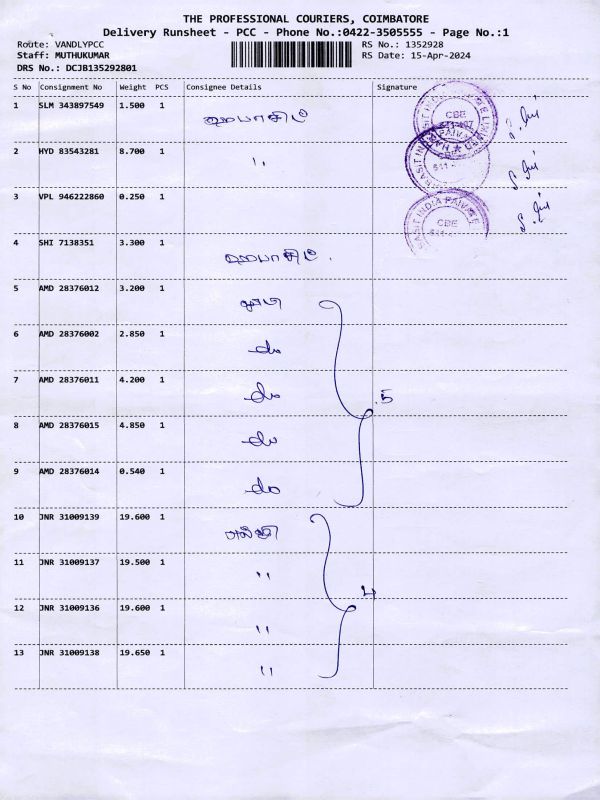 THE PROFESSIONAL COURIERS, COIMBATORE
Delivery Runsheet - PCC - Phone No.:0422-3505555 - Page No.:1
Route: VANDLYPCC
Staff: MUTHUKUMAR
DRS No.: DCJB135292801
RS No.: 1352928
RS Date: 15-Apr-2024
S No Consignment No Weight PCS Consignee Details Signature
1 SLM 343897549 1.500 1
2 HYD 83543281 8.700 1 "
3 VPL 946222860 0.250 1
4 SHI 7138351 3.300 1
5 AMD 28376012 3.200 1
6 AMD 28376002 2.850 1 do
7 AMD 28376011 4.200 1 do
5
8 AMD 28376015 4.850 1 do
9 AMD 28376014 0.540 1 do
10 JNR 31009139 19.600 1
11 JNR 31009137 19.500 1 "
4
12 JNR 31009136 19.600 1 "
13 JNR 31009138 19.650 1 "
CBE
CBE